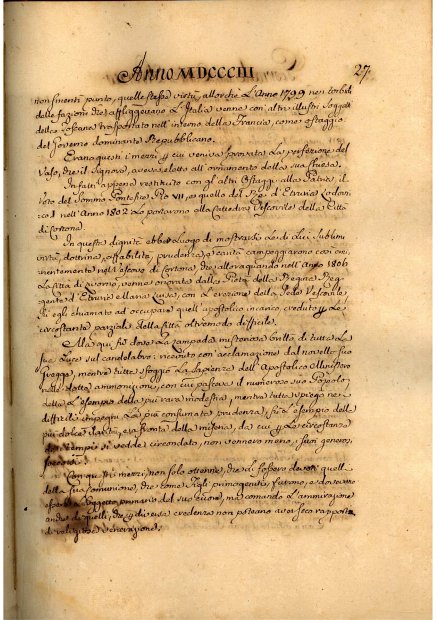 Anno MDCCCIII
27
non smentì punto, quelle stesse virtù, allorchè l'Anno 1799 nei torbidi
delle fazioni che affliggevano l'Italia venne con altri illustri Soggetti
della Toscana trasportato nell'interno della Francia, come ostaggio
del Governo dominante Repubblicano.
Erano questi i mezzi, per cui veniva formata la perfezione del
Vaso, che il Signore, aveva eletto all'ornamento della sua Chiesa.
Infatti appena restituito con gli altri Ostaggi alla Patria il
voto del Sommo Pontefice Pio VII, e quello del Re d'Etruria Lodovi
co I nell'Anno 1802 lo portarono alla Cattedra Vescovile della Città
di Cortona.
In questa dignità ebbe luogo di mostrarsi le di Lui sublimi
virtù, dottrina, affabilità, prudenza, e carità campeggiarono così emi
nentemente nel Vescovo di Cortona, che allora quando nell'Anno 1806
la Città di Livorno, venne onorata dalla Pietà della Regina Reg
gente d'Etruria Maria Luisa, con l'erezione della Sede Vescovile,
fu egli chiamato ad occupare quell'apostolico incarico creduto per le
circostanze parziali della Città oltremodo difficile.
Alla qui fu dove la lampada misteriosa brillò di tutta la
sua luce sul candelabro: ricevuto con acclamazione dal novello suo
Gregge, mentre tutta sfoggiò la sapienza dell'Apostolico Ministero
nelle dotte ammonizioni, con cui pasceva il numeroso suo Popolo
dette l'esempio della più rara modestia, mentre tutta spiegò nei
difficili impegni la più consumata prudenza, fu d'esempio della
più dolce carità, e la Bontà della miseria, da cui per le circostanze
dei tempi si vedde circondato, non vennero meno i suoi generosi
soccorsi.
Con questi mezzi, non solo ottenne, che si fossero devoti quelli
della sua Comunione, che come figli primogeniti, furono, e dovettero
essere l'oggetto primario del suo cuore, ma comandò l'ammirazione
anche di quelli, che per diversa credenza non poteano aver seco rapporto
di religiosa venerazione.